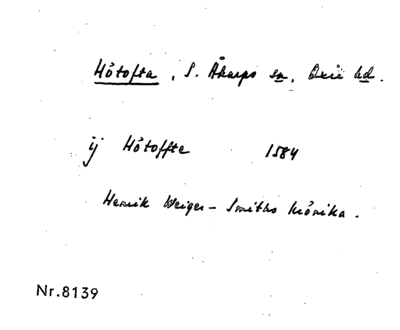 Hötofta, S. Åkarps sn, Oxie hd.
ij Hötoffte 1584
Henrik Weiger – Smiths krönika.
Nr.8139